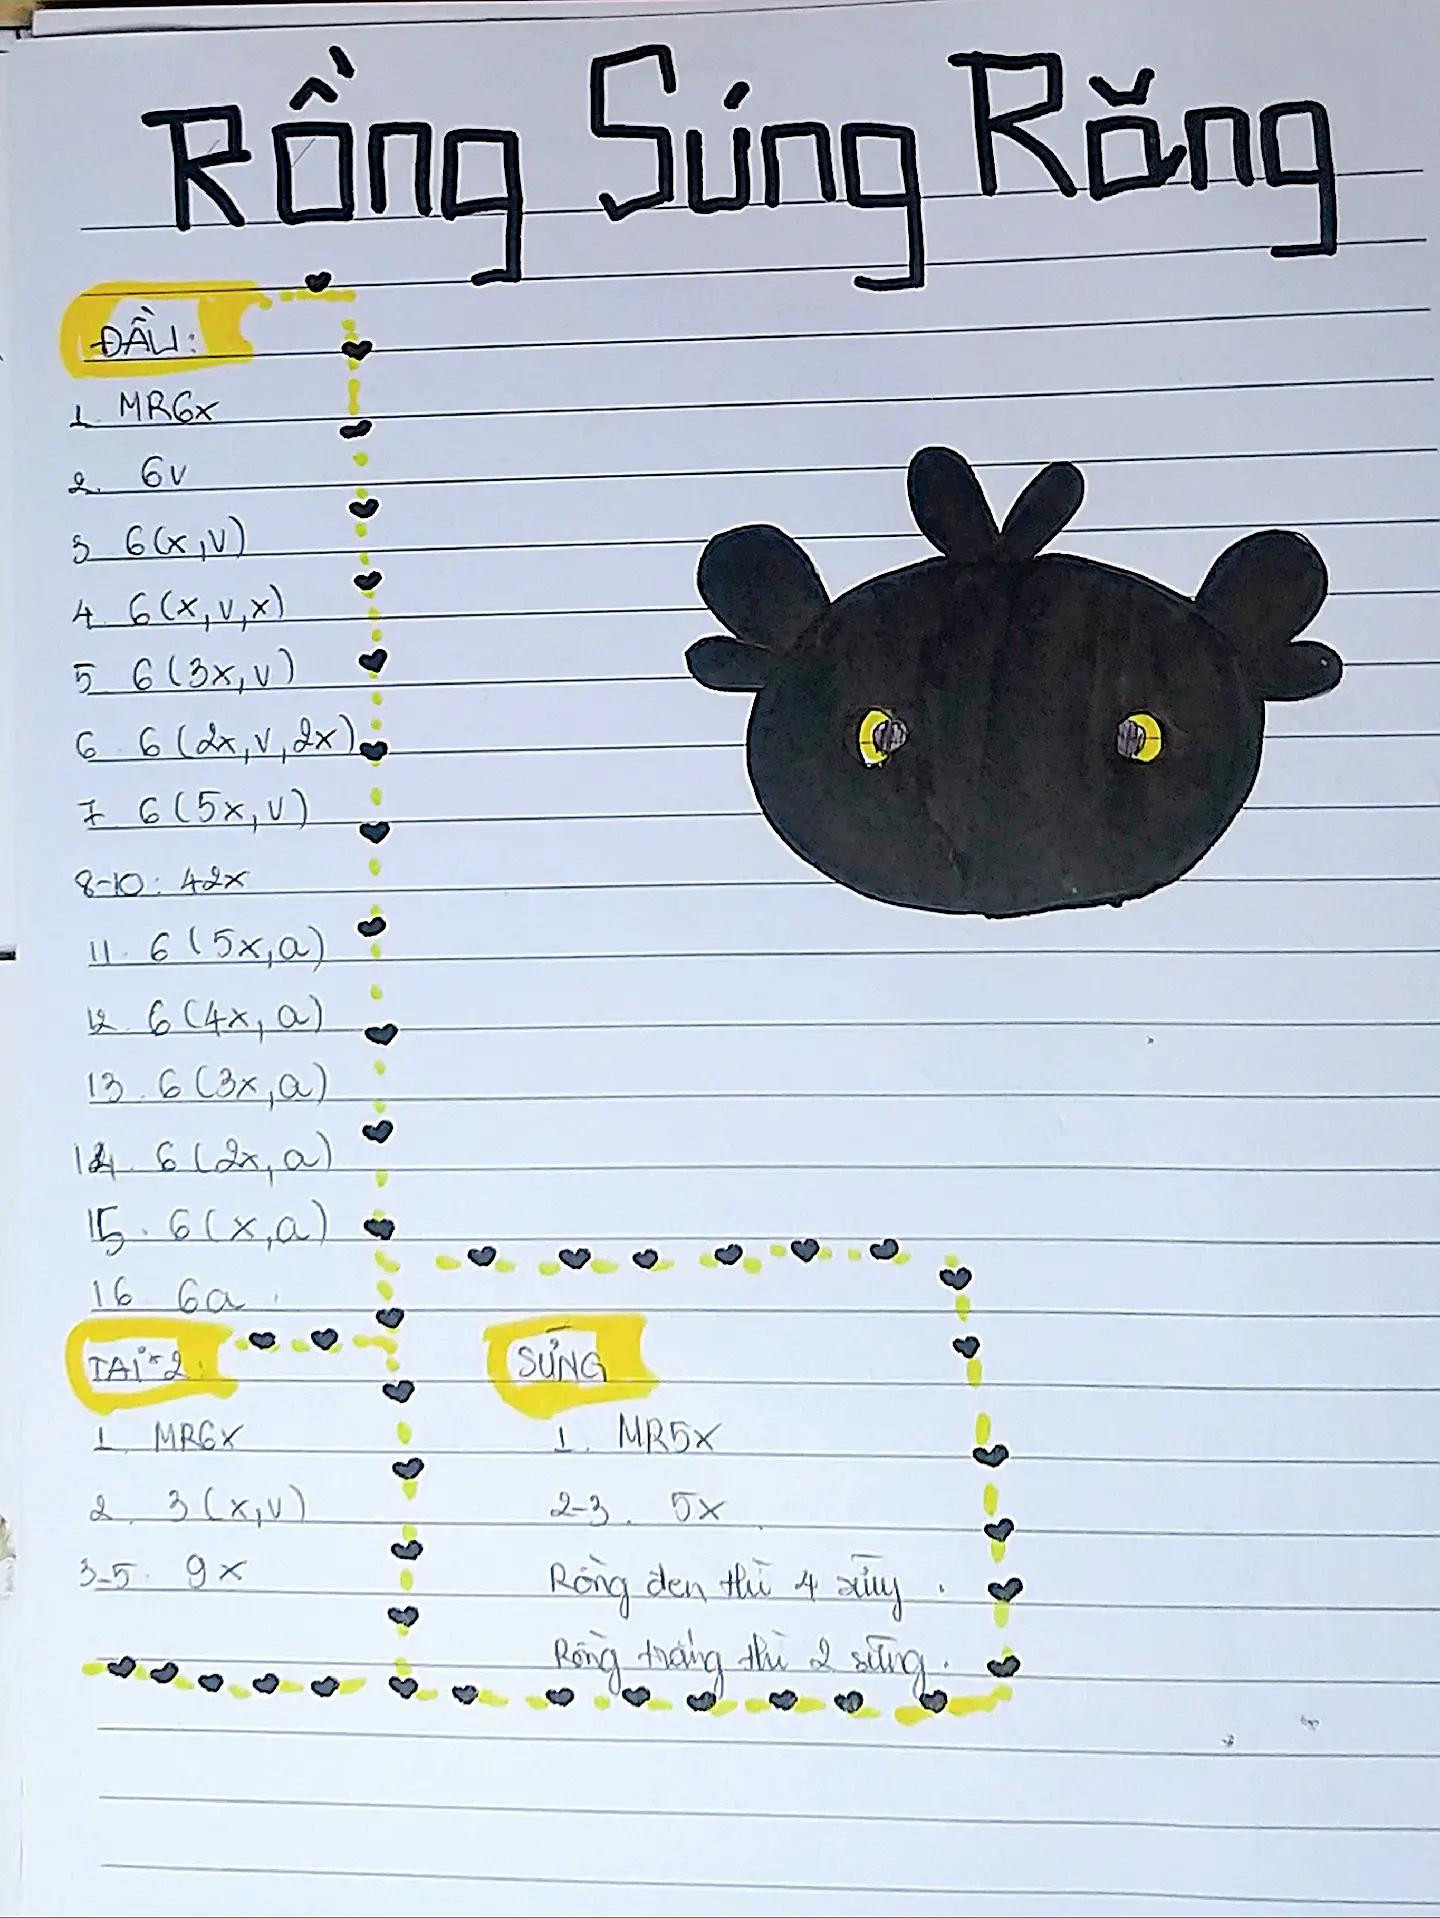 Rồng Súng Răng
ĐẦU:
1. MR6x
2. 6v
3 6(x,v)
4. 6(x,v,x)
5 6(3x,v)
6. 6(2x,v,2x)
7 6(5x,v)
8-10: 42x
11. 6(5x,a)
12. 6(4x,a)
13. 6(3x,a)
14. 6(2x,a)
15. 6(x,a)
16 6a.
TAI*2:
1. MR6x
2. 3(x,v)
3-5. 9x
SỪNG
1. MR5x
2-3. 5x
Rồng đen thì 4 sừng.
Rồng trắng thì 2 sừng.